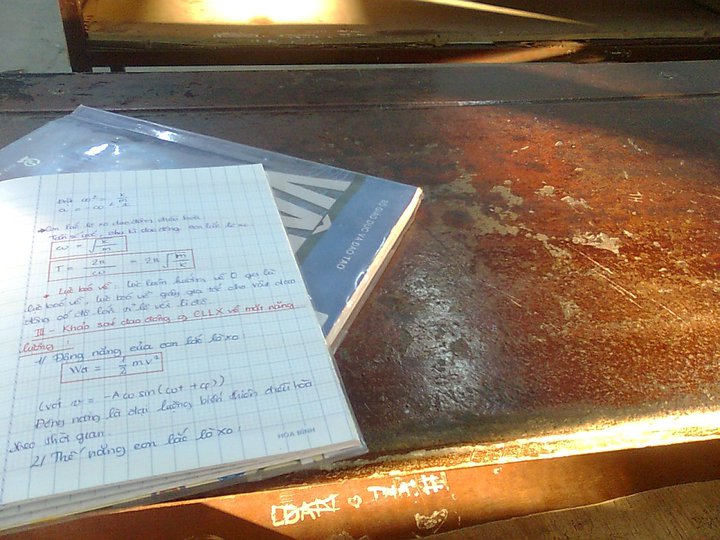 Đặt ω² = k/m
a = -ω²x
Con lắc lò xo dao động điều hòa
Tần số góc, chu kì dao động con lắc lò xo
ω = √(k/m)
T = 2π/ω = 2π√(m/k)
* Lực kéo về: Lực luôn hướng về O gọi là
lực kéo về, lực kéo về gây gia tốc cho vật dao
động có độ lớn tỉ lệ với li độ
III - Khảo sát dao động of CLLX về mặt năng
lượng:
1/ Động năng của con lắc lò xo:
Wđ = 1/2 mv²
(với v = -Aω sin(ωt + φ))
Động năng là đại lượng biến thiên điều hòa
theo thời gian.
2/ Thế năng con lắc lò xo:
HÒA BÌNH
BỘ GIÁO DỤC VÀ ĐÀO TẠO
VẬ